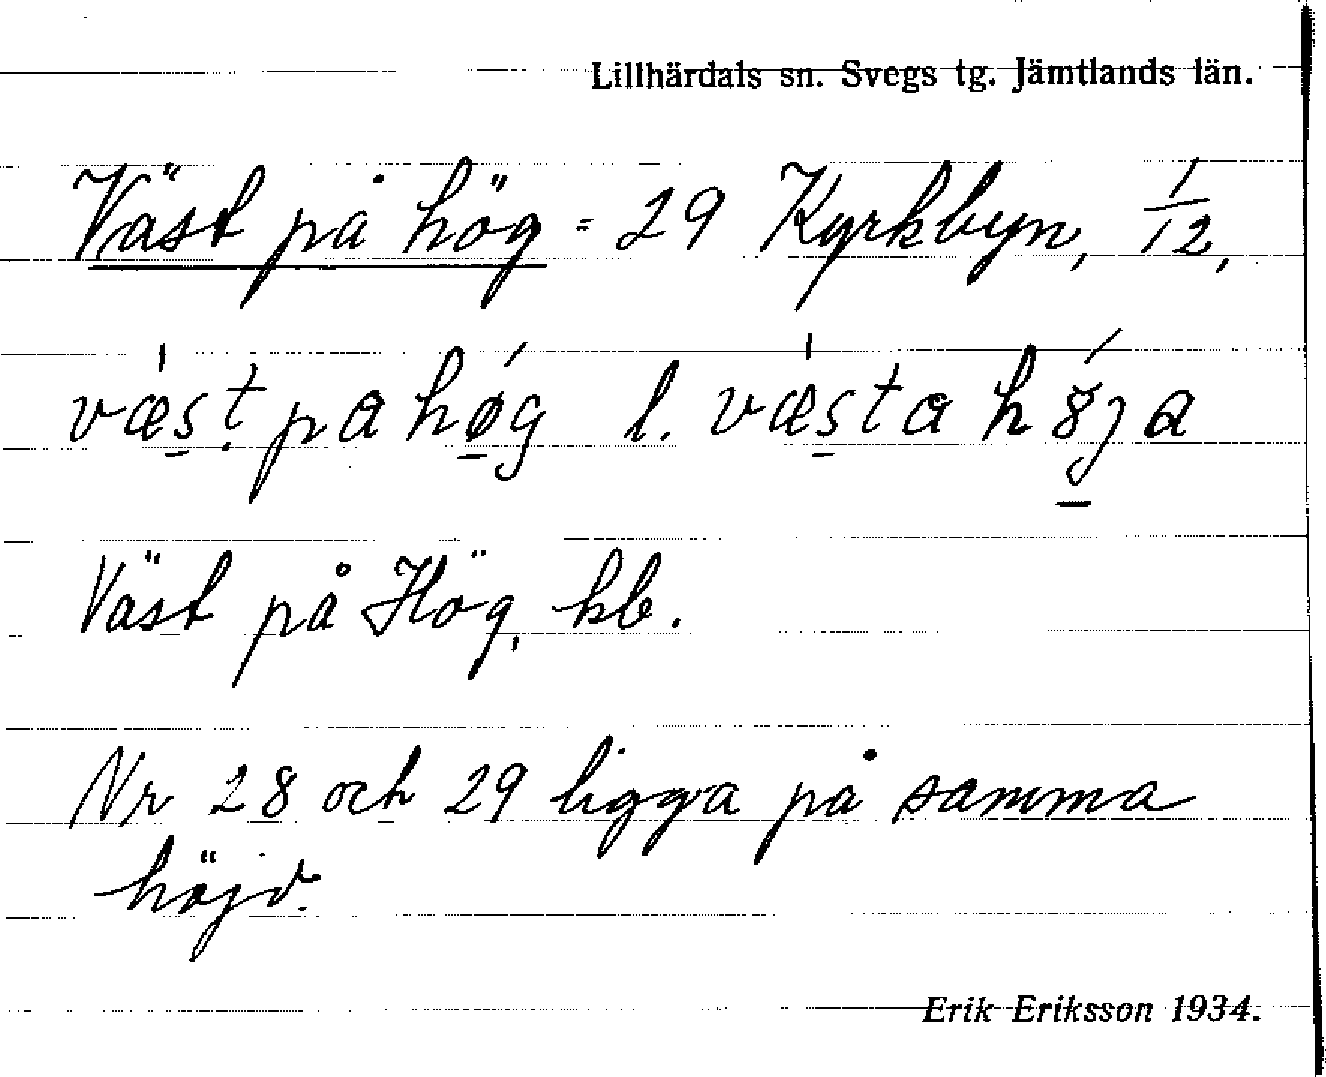 Lillhärdals sn. Svegs tg. Jämtlands län.
Väst på hög = 29 Kyrkbyn, 1/12,
væs̠ṭ pa hǿ̠g l. væs̠ta h8̠́ȷa
Väst på Hög, kb.
Nr 28 och 29 ligga på samma
höjd.
Erik Eriksson 1934.